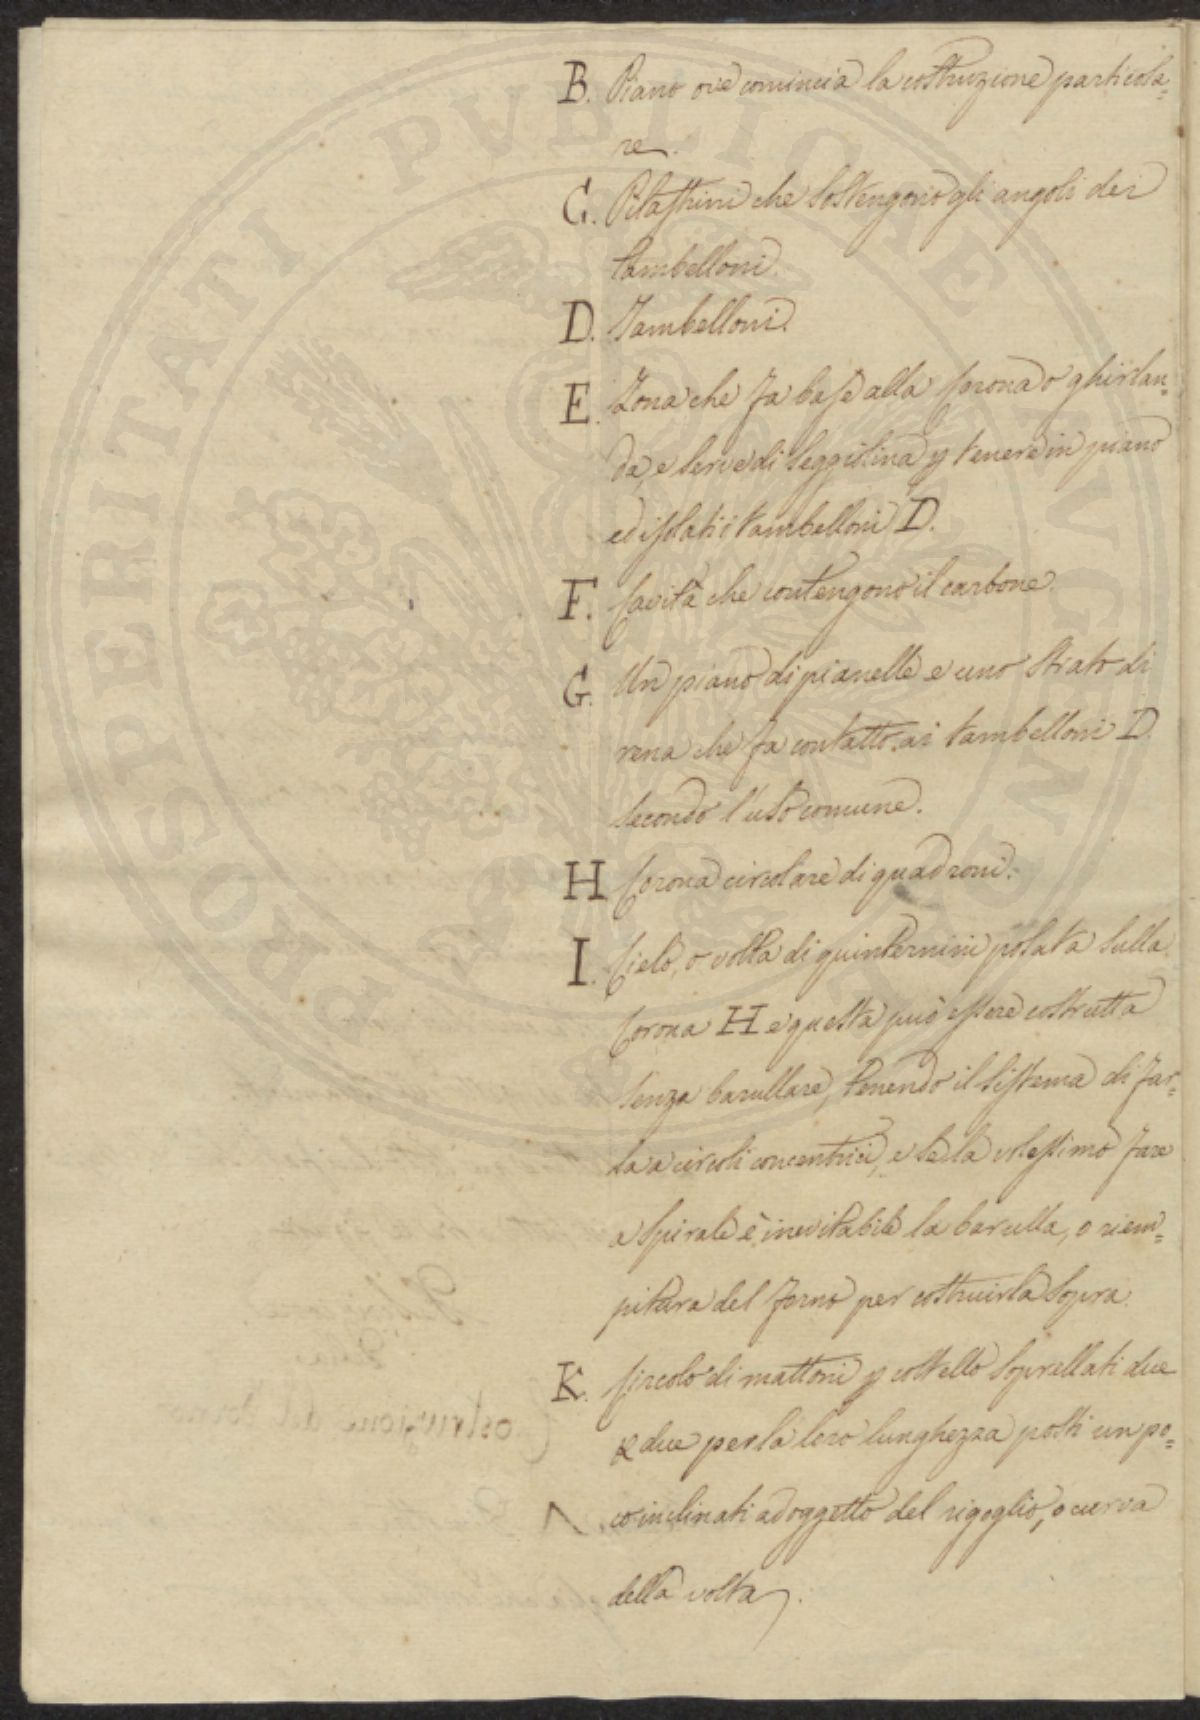 B. Piano ove comincia la costruzione particola=
re.
C. Pilastrini che sostengono gli angoli dei
tambelloni.
D. Tambelloni.
E. Zona che fa base alla Corona o ghirlan=
da, e serve di seggiolina p tenere in piano
ed isolati i tambelloni D.
F. Cavità che contengono il carbone.
G. Un piano di pianelle e uno strato di
rena che fa contatto ai tambelloni D.
secondo l'uso comune.
H Corona circolare di quadroni.
I. Cielo, o volta di quinternini posata sulla
Corona H e questa può essere costrutta
senza barullare, tenendo il sistema di far=
la a circoli concentrici, e se la volessimo fare
a spirale è inevitabile la barulla, o riem=
pitura del forno per costruirla sopra.
K. Circolo di mattoni p coltello soprellati due
a due per la loro lunghezza posti un po=
co inclinati ad oggetto del rigoglio, o curva
della volta.
PROSPERITATI PVBLICAE AVGENDAE